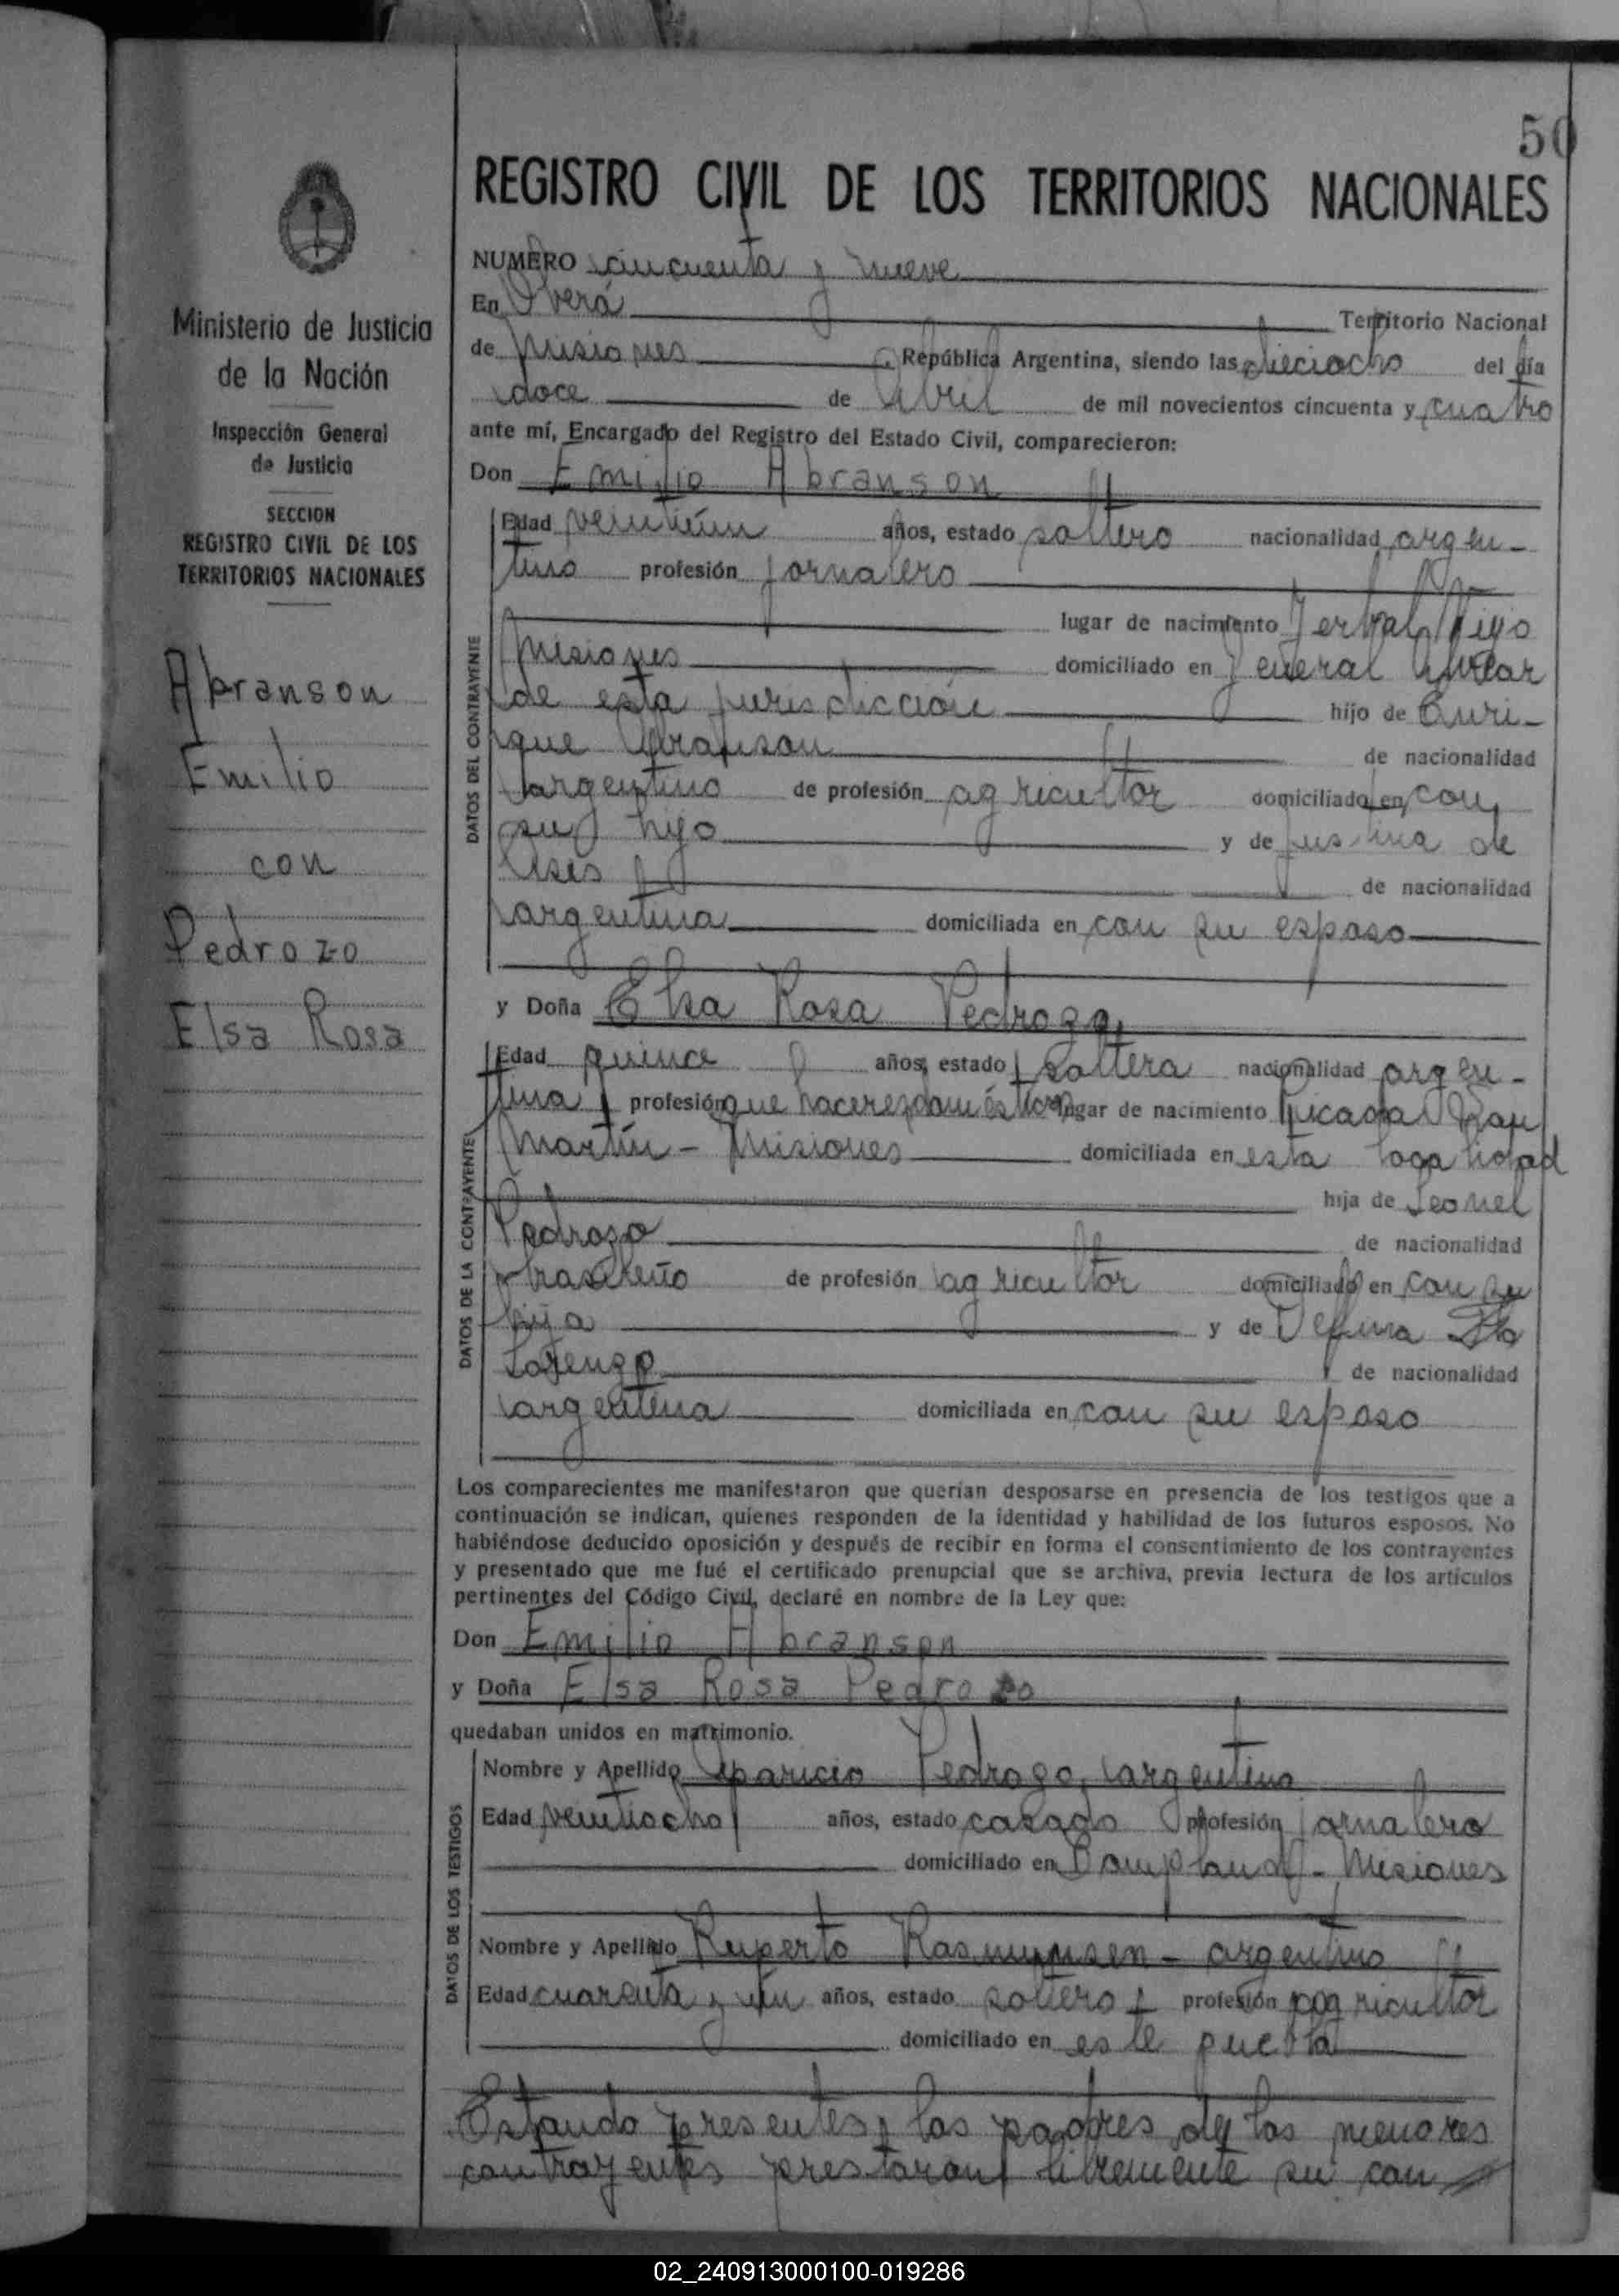 50
REGISTRO CIVIL DE LOS TERRITORIOS NACIONALES
Ministerio de Justicia
de la Nación
Inspección General
de Justicia
SECCION
REGISTRO CIVIL DE LOS
TERRITORIOS NACIONALES
Abranson
Emilio
con
Pedrozo
Elsa Rosa
NUMERO cincuenta y nueve
En Oberá Territorio Nacional
de Misiones República Argentina, siendo las dieciocho del día
doce de Abril de mil novecientos cincuenta y cuatro
ante mí, Encargado del Registro del Estado Civil, comparecieron:
Don Emilio Abranson
DATOS DEL CONTRAYENTE
Edad veintiún años, estado soltero nacionalidad argen-
tino profesión jornalero
lugar de nacimiento Yerbal Viejo
Misiones domiciliado en General Alvear
de esta jurisdicción hijo de Enri-
que Abranson de nacionalidad
argentino de profesión agricultor domiciliado en con
su hijo y de Justina de
de nacionalidad
argentina domiciliada en con su esposo
y Doña Elsa Rosa Pedrozo
DATOS DE LA CONTRAYENTE
Edad quince años, estado soltera nacionalidad argen-
tina profesión que haceres domésticos lugar de nacimiento Picada San
Martín - Misiones domiciliada en esta localidad
hija de Leonel
Pedrozo de nacionalidad
brasileño de profesión agricultor domiciliado en con su
hija y de Delfina
Lorenzo de nacionalidad
argentina domiciliada en con su esposo
Los comparecientes me manifestaron que querían desposarse en presencia de los testigos que a
continuación se indican, quienes responden de la identidad y habilidad de los futuros esposos. No
habiéndose deducido oposición y después de recibir en forma el consentimiento de los contrayentes
y presentado que me fué el certificado prenupcial que se archiva, previa lectura de los artículos
pertinentes del Código Civil, declaré en nombre de la Ley que:
Don Emilio Abranson
y Doña Elsa Rosa Pedrozo
quedaban unidos en matrimonio.
DATOS DE LOS TESTIGOS
Nombre y Apellido Aparicio Pedrozo, argentino
Edad veintiocho años, estado casado profesión jornalero
domiciliado en Bompland - Misiones
Nombre y Apellido Ruperto Rasmunsen - argentino
Edad cuarenta y un años, estado soltero profesión agricultor
domiciliado en este pueblo
Estando presentes los padres de los menores
contrayentes prestaron libremente su con
02_240913000100-019286